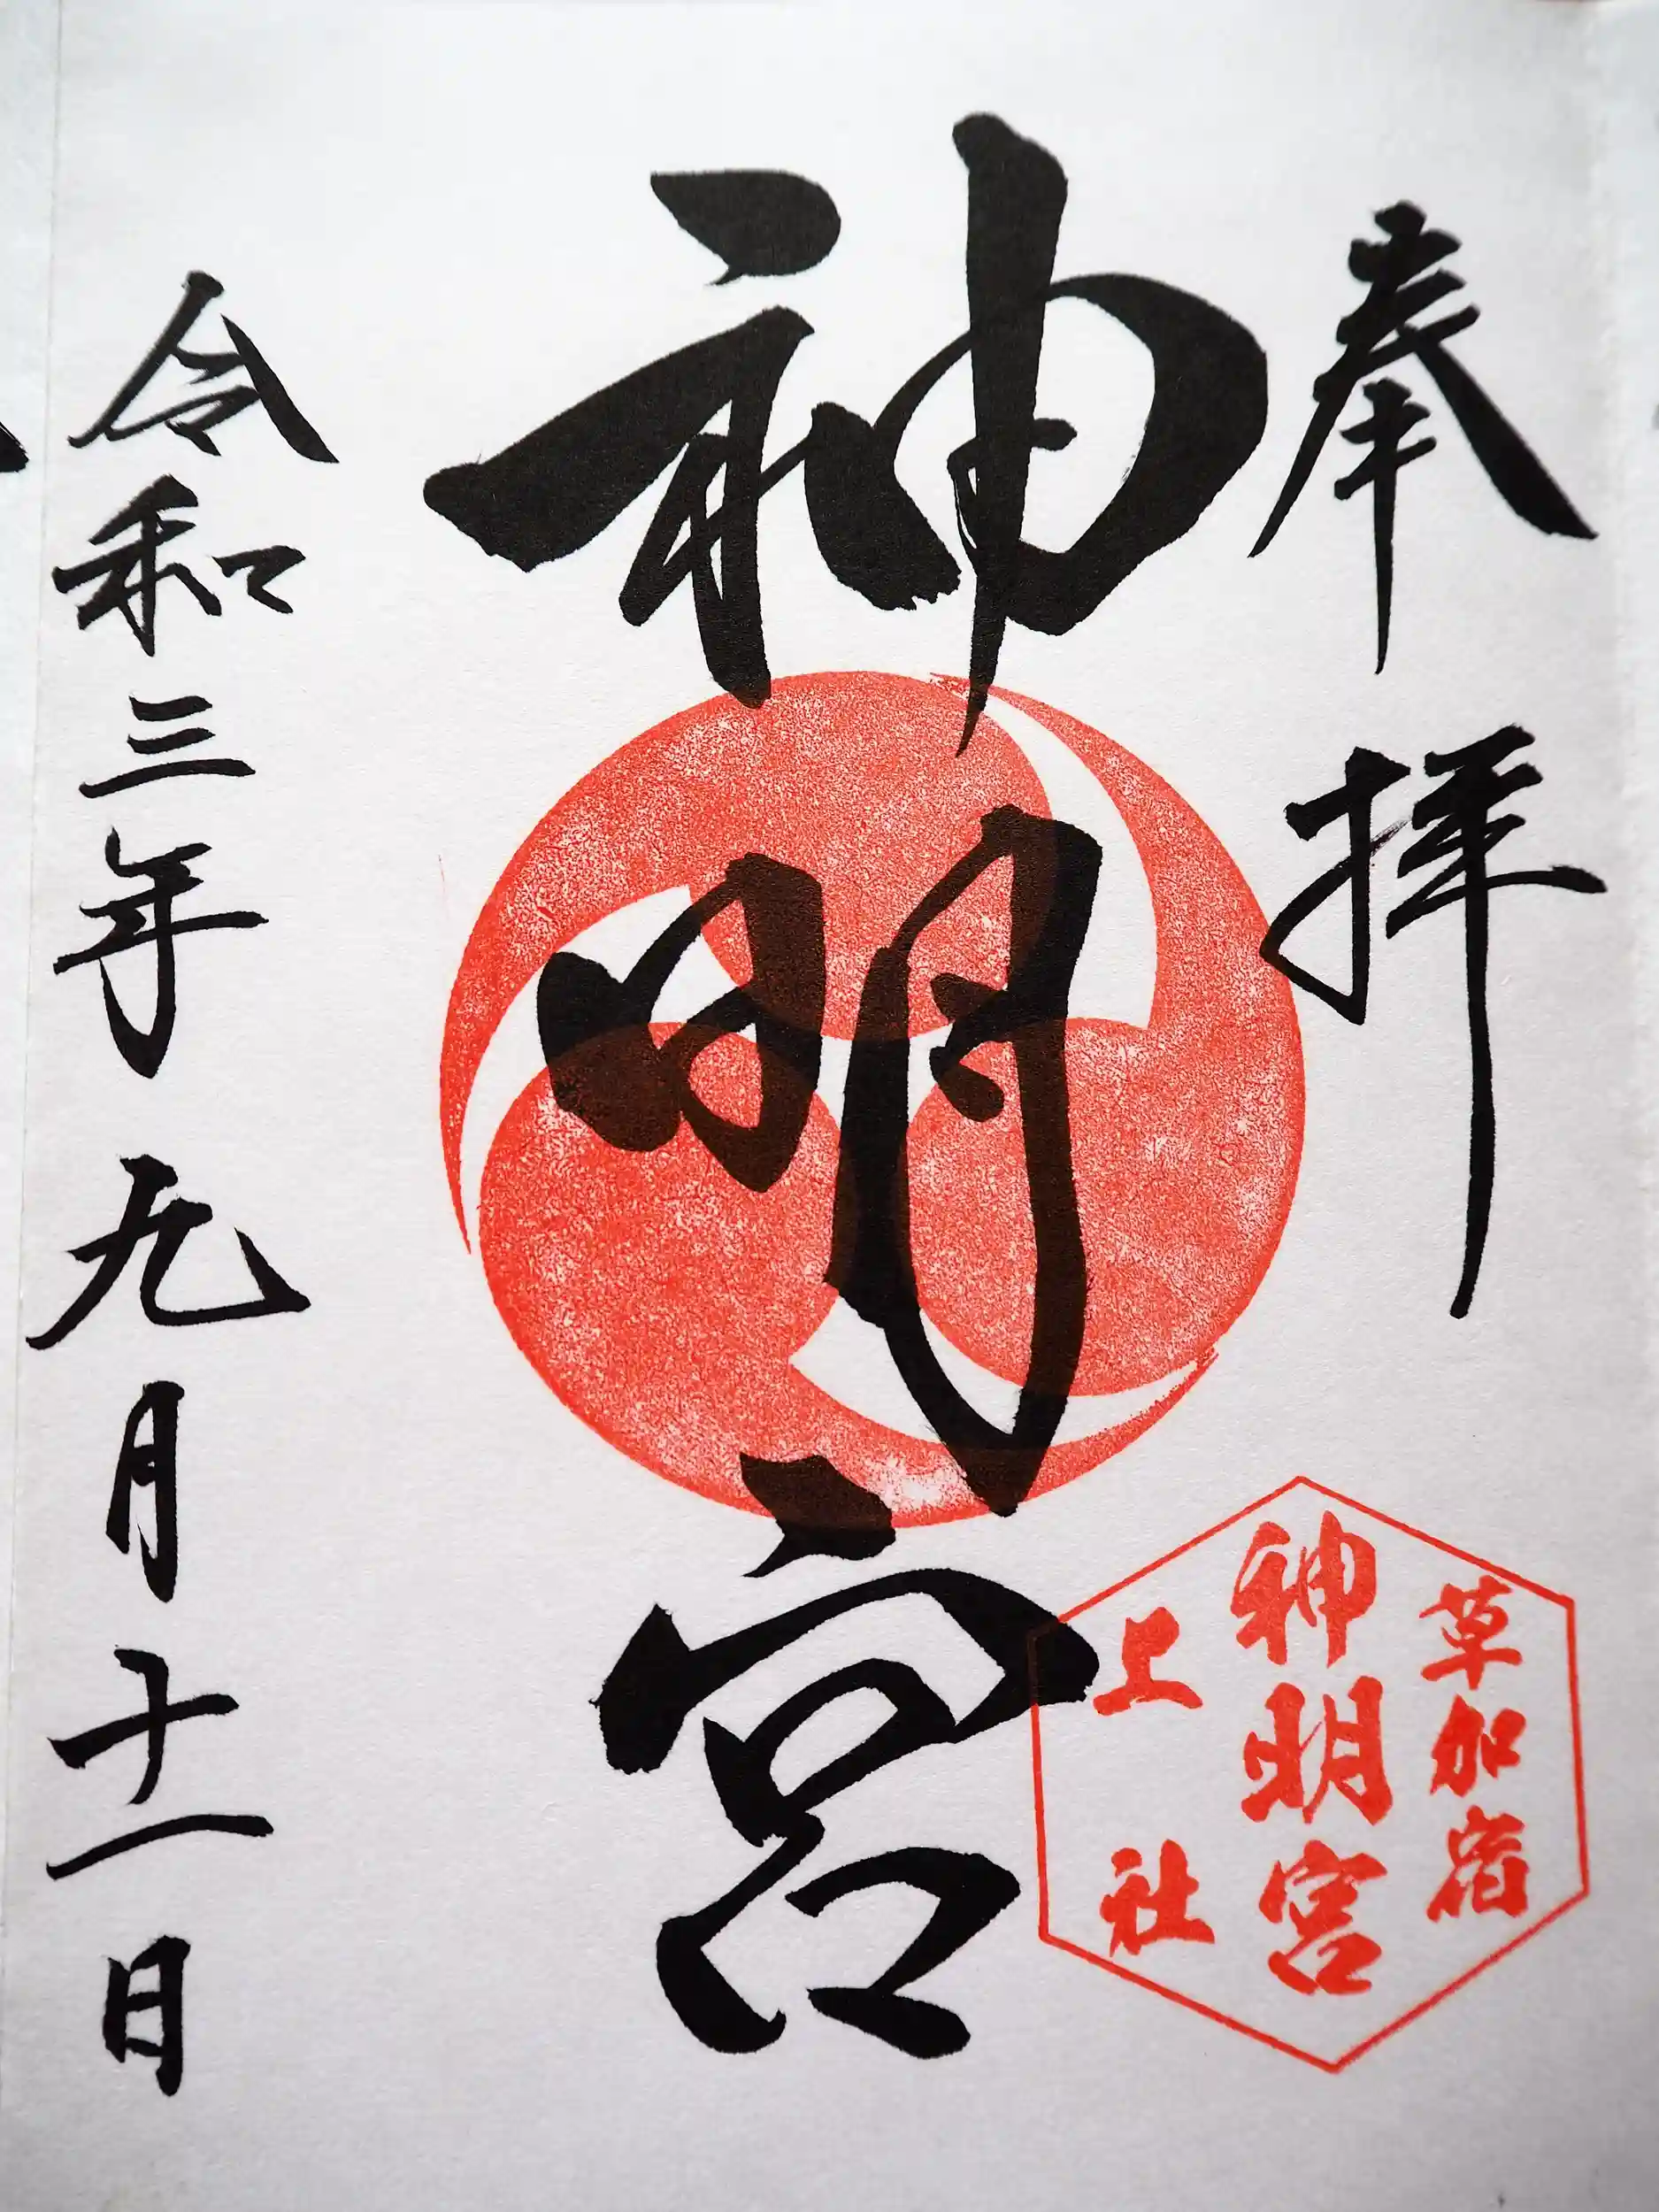 奉拝
神明宮
草加宿
神明宮
上社
令和三年九月十一日